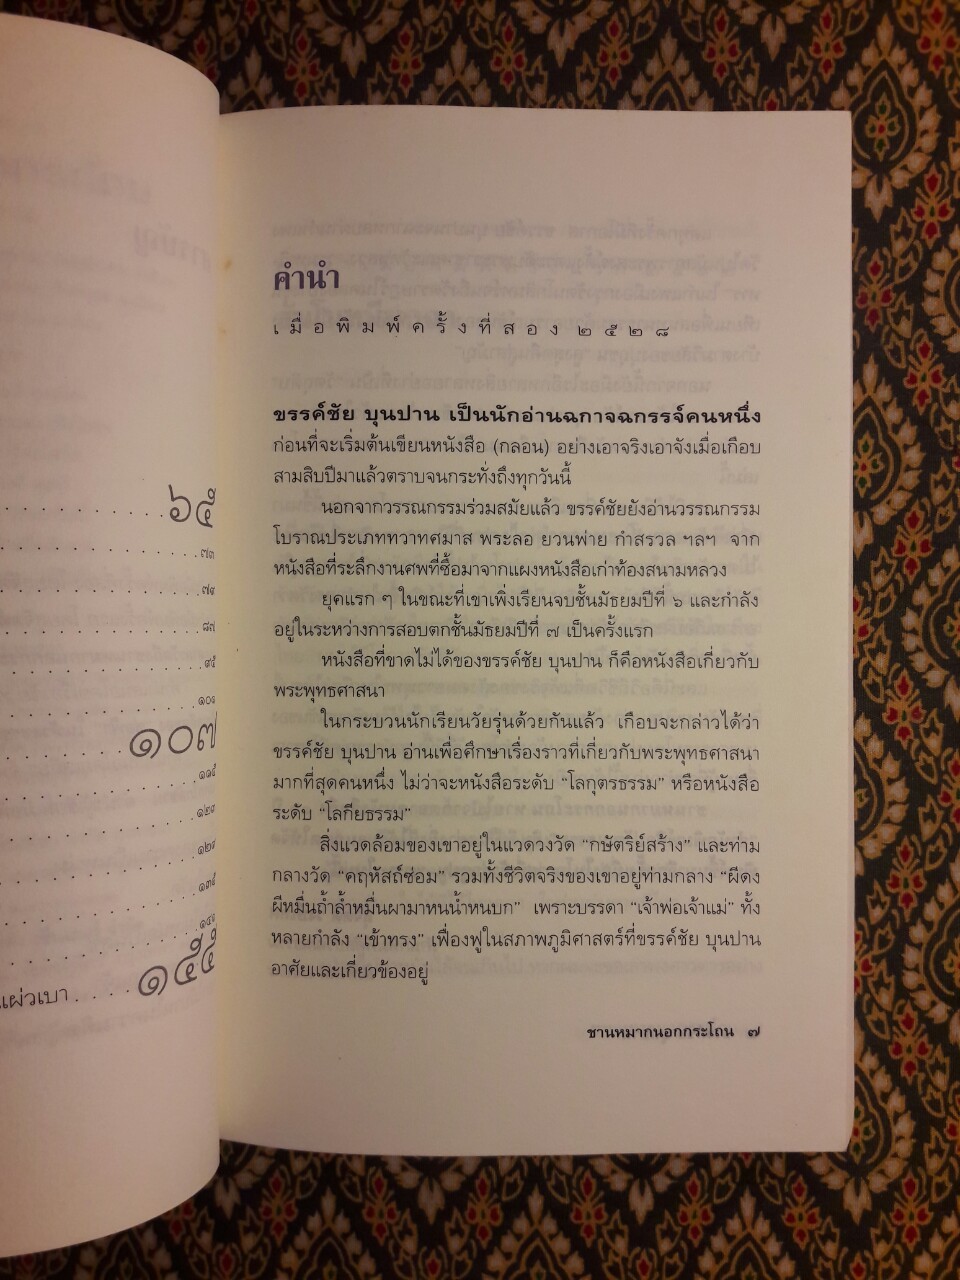 ๖๕
๗๓
๗๙
๘๗
๙๕
๑๐๑
๑๐๗
๑๑๕
๑๒๑
๑๒๗
๑๓๕
๑๔๑
แผ่วเบา . . . . ๑๕๕
คำนำ
เมื่อพิมพ์ครั้งที่สอง ๒๕๒๘
ขรรค์ชัย บุนปาน เป็นนักอ่านฉกาจฉกรรจ์คนหนึ่ง
ก่อนที่จะเริ่มต้นเขียนหนังสือ (กลอน) อย่างเอาจริงเอาจังเมื่อเกือบ
สามสิบปีมาแล้วตราบจนกระทั่งถึงทุกวันนี้
นอกจากวรรณกรรมร่วมสมัยแล้ว ขรรค์ชัยยังอ่านวรรณกรรม
โบราณประเภททวาทศมาส พระลอ ยวนพ่าย กำสรวล ฯลฯ จาก
หนังสือที่ระลึกงานศพที่ซื้อมาจากแผงหนังสือเก่าท้องสนามหลวง
ยุคแรก ๆ ในขณะที่เขาเพิ่งเรียนจบชั้นมัธยมปีที่ ๖ และกำลัง
อยู่ในระหว่างการสอบตกชั้นมัธยมปีที่ ๗ เป็นครั้งแรก
หนังสือที่ขาดไม่ได้ของขรรค์ชัย บุนปาน ก็คือหนังสือเกี่ยวกับ
พระพุทธศาสนา
ในกระบวนนักเรียนวัยรุ่นด้วยกันแล้ว เกือบจะกล่าวได้ว่า
ขรรค์ชัย บุนปาน อ่านเพื่อศึกษาเรื่องราวที่เกี่ยวกับพระพุทธศาสนา
มากที่สุดคนหนึ่ง ไม่ว่าจะหนังสือระดับ “โลกุตรธรรม” หรือหนังสือ
ระดับ “โลกียธรรม”
สิ่งแวดล้อมของเขาอยู่ในแวดวงวัด “กษัตริย์สร้าง” และท่าม
กลางวัด “คฤหัสถ์ซ่อม” รวมทั้งชีวิตจริงของเขาอยู่ท่ามกลาง “ผีดง
ผีหมื่นถ้ำล้ำหมื่นผามาหนน้ำหนบก” เพราะบรรดา “เจ้าพ่อเจ้าแม่” ทั้ง
หลายกำลัง “เข้าทรง” เฟื่องฟูในสภาพภูมิศาสตร์ที่ขรรค์ชัย บุนปาน
อาศัยและเกี่ยวข้องอยู่
ชานหมากนอกกระโถน ๗